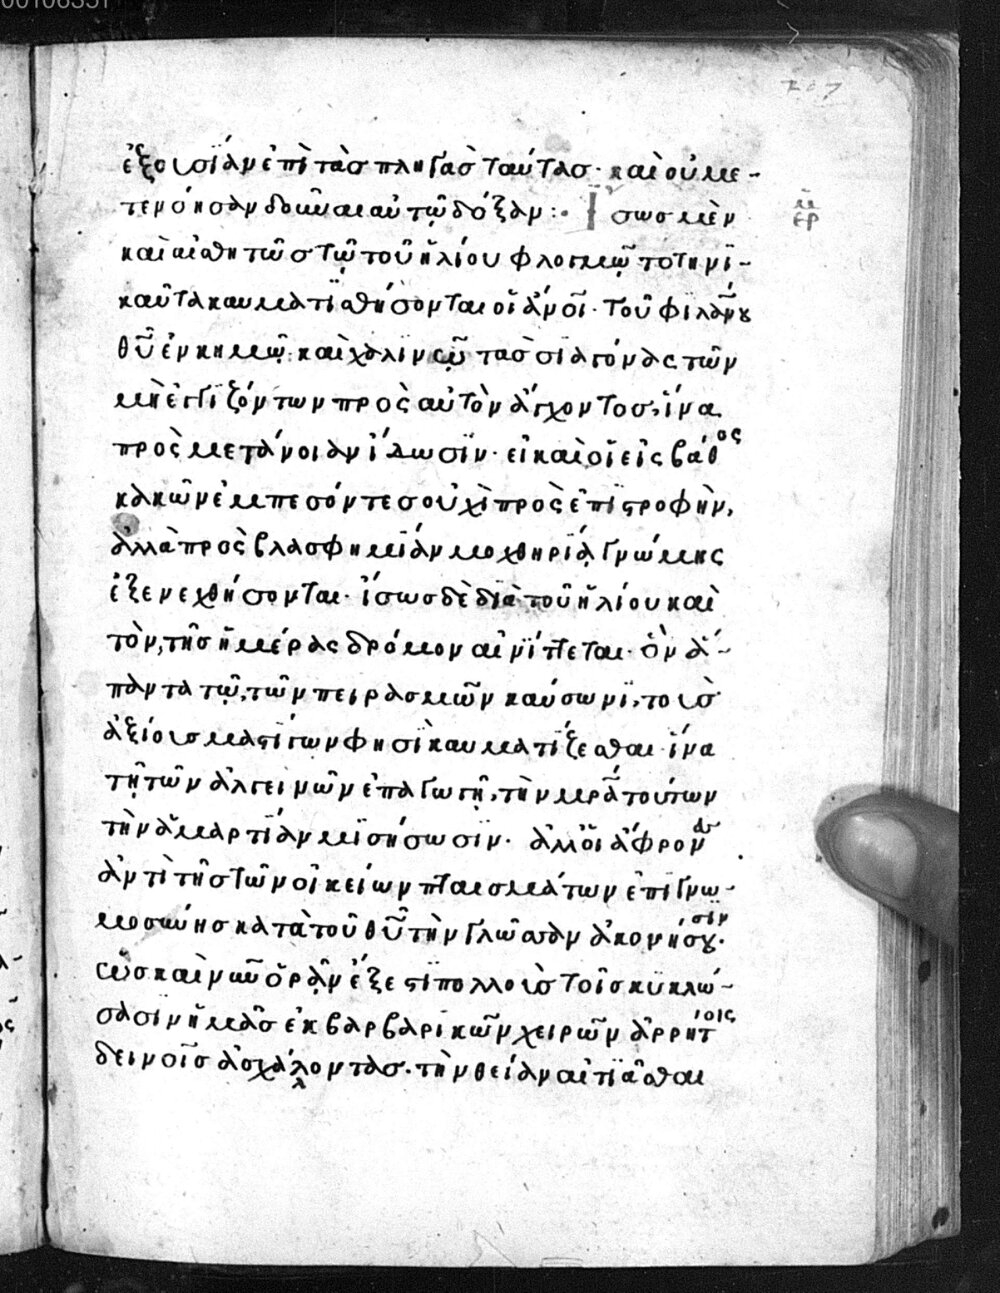 00106351
207
ἐξουσΐαν ἐπὶ τὰσ πληγὰσ ταύτασ· καὶ οὐ με-
τενόησαν δοῦναι αὐτῶ δόξαν :· Ἴσωσ μὲν
ἑρ
καὶ αἰσθητῶσ τῶ τοῦ ἡλίου φλογμῶ τοτηνΐ-
καῦτα καυματϊσθήσονται οἱ ἄνοι· τοῦ φιλανου
θῦ ἐν κημῶ καὶ χαλινῶ τὰσ σϊαγόνας τῶν
μὴ ἐγγϊζόντων πρὸς αὐτὸν ἄγχοντοσ, ἵνα
πρὸς μετάνοιαν ἴδωσϊν· εἰ καὶ οἱ εἰς βάθος
κακῶν ἐμπεσόντεσ οὐχὶ πρὸς ἐπϊστροφὴν,
ἀλλὰ πρὸς βλασφημΐαν μοχθηρία γνώμης
ἐξενεχθήσονται· ἴσωσ δὲ δϊὰ τοῦ ἡλίου καὶ
τὸν, τῆσ ἡμέρας δρόμον αἰνΐττεται· ὃν ἅ-
παντα τῶ, τῶν πειρασμῶν καύσωνϊ, τοὺσ
ἀξίουσ μαστίγων φησὶ καυματΐζεσθαι ἵνα
τῆ τῶν ἀλγεινῶν ἐπαγωγῆ, τὴν μρα τούτων
τὴν ἁμαρτΐαν μϊσήσωσϊν· ἀλλ' οἱ ἄφρονες
ἀντὶ τῆσ τῶν οἰκείων πταισμάτων ἐπϊγνω-
μοσύνησ κατὰ τοῦ θῦ τὴν γλῶσσαν ἀκονήσουσϊν·
ὡσ καὶ νῦν ὁρᾶν ἔξεστϊ πολλοὺσ τοῖσ κυκλώ-
σασϊν ἡμᾶσ ἐκ βαρβαρικῶν χειρῶν ἀρρήτοις
δεινοῖσ ἀσχάλλοντασ· τὴν θείαν αἰτϊᾶσθαι